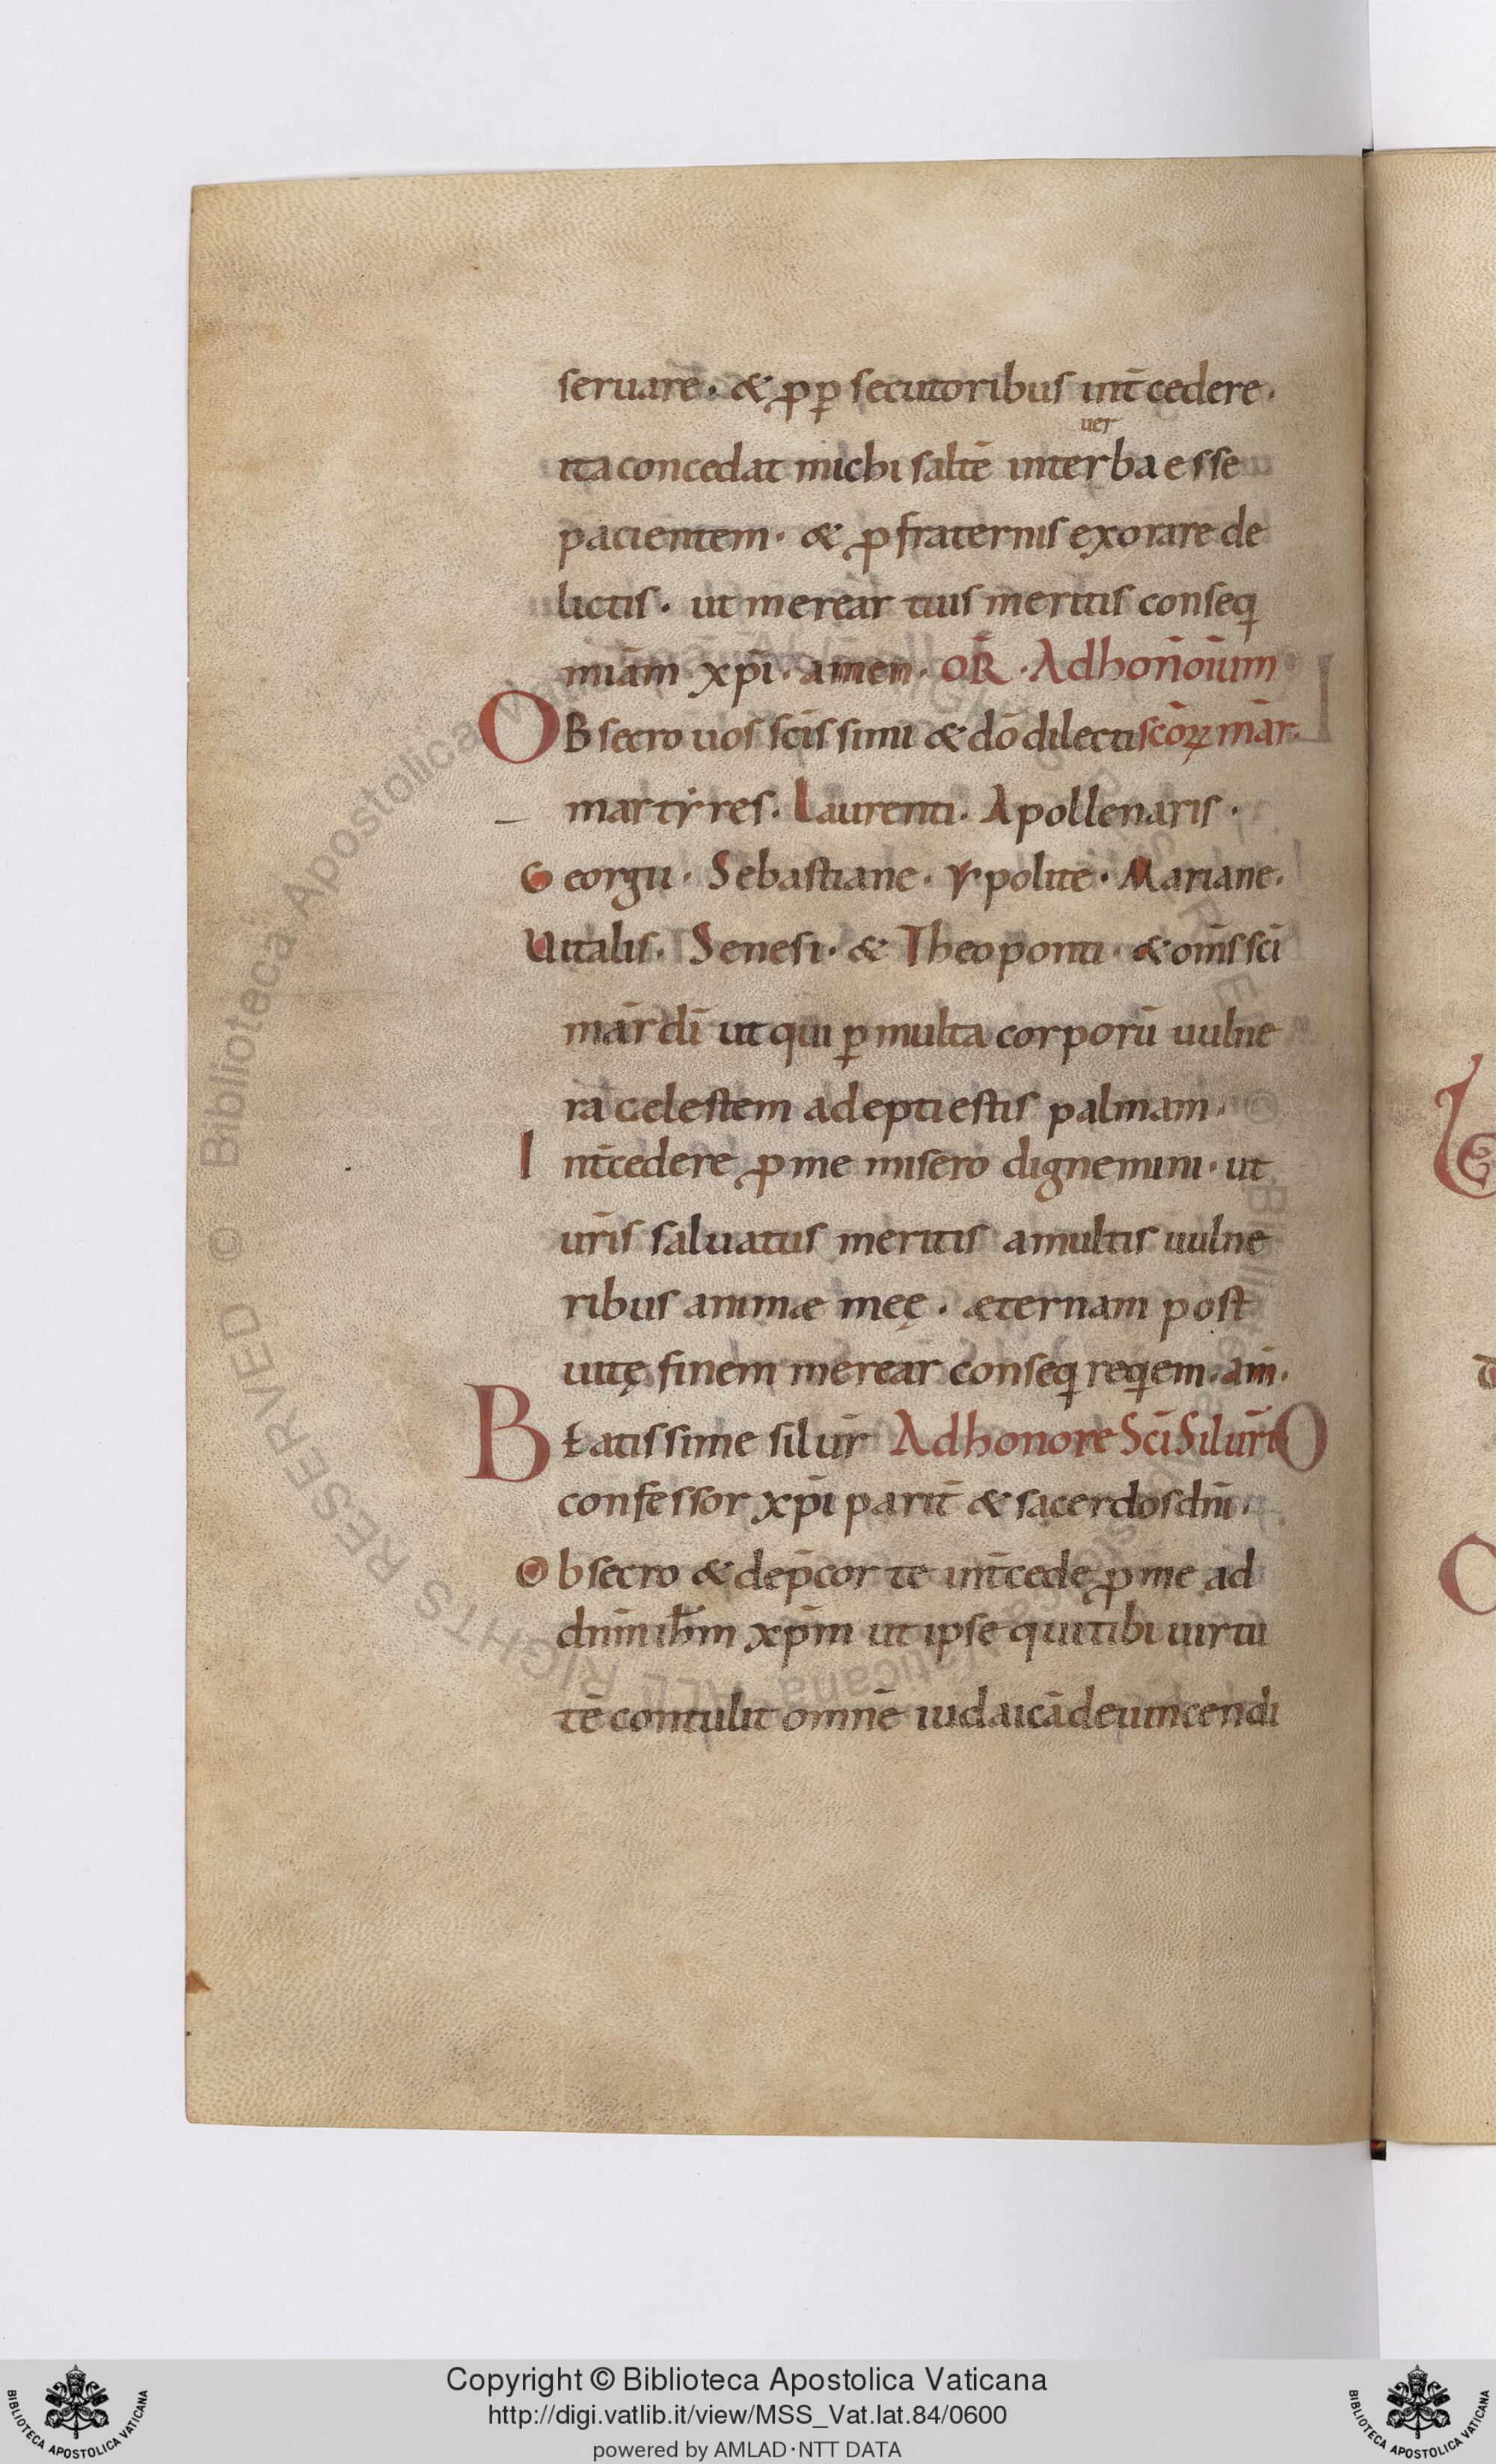 seruare · & ꝓꝑsecutoribus int̄cedere ·
uer
ita concedat michi saltē interba esse
pacientem · & ꝓ fraternis exorare de
lictis · ut merear tuis meritis conseq
miām xp̄i · amen · OR̄ · Ad hon̄ oīum
OBsecro uos sc̄issimi & dō dilecti sc̄oꝝ mār ·
martyres · Laurenti · Apollenaris ·
Georgii · Sebastiane · Ypolite · Mariane ·
Uitalis · Senesi · & Theoponti · & om̄s sc̄i
mār dī ut qui ꝑ multa corporū uulne
ra celestem adepti estis palmam ·
Int̄cedere ꝓ me misero dignemini · ut
ur̄is saluatus meritis a multis uulne
ribus animæ meę · æternam post
uitę finem merear conseq reqem · am̄ ·
Bęatissime silur̄ Ad honore Sc̄i Silur̄i
confessor xp̄i parit̄ & sacerdos dn̄i ·
Obsecro & dep̄cor te int̄cede ꝓ me ad
dn̄m ih̄m xp̄m ut ipse qui tibi uirtu
tē contulit omnē iudaicā deuincendi
Copyright © Biblioteca Apostolica Vaticana
http://digi.vatlib.it/view/MSS_Vat.lat.84/0600
powered by AMLAD·NTT DATA